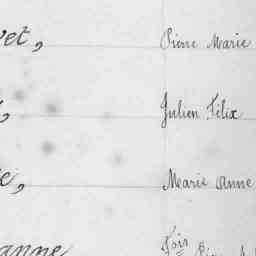 vet, Pierre Marie
, Julien Félix
e, Marie Anne
anne Fois